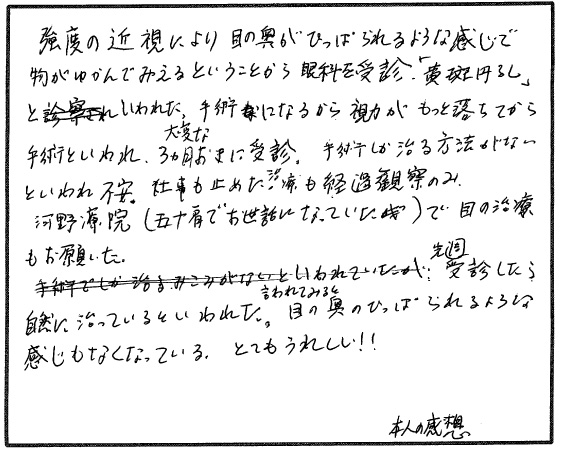 強度の近視により目の奥がひっぱられるような感じで
物がゆがんでみえるということから眼科を受診.「黄斑円孔」
と診察されいわれた, 手術になるから視力がもっと落ちてから
大変な
手術といわれ, 3ヵ月おきに受診. 手術しか治る方法がない
といわれ不安. 仕事も止めた治療も経過観察のみ.
河野薬院(五十肩でお世話になっていた時)で目の治療
もお願いした.
先週
手術でしか治るみこみがないといわれていたが, 受診したら
言われてみると
自然に治っているといわれた。目の奥のひっぱられるような
感じもなくなっている. とてもうれしい!!
本人の感想